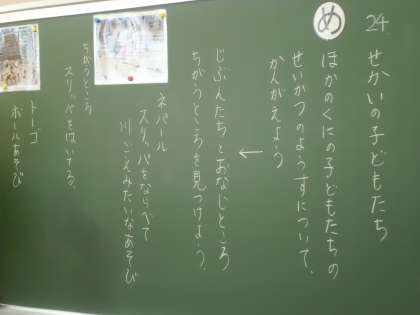 24 せかいの子どもたち
め
ほかのくにの子どもたちの
せいかつのようすについて、
かんがえよう
←
じぶんたちとおなじところ
ちがうところを見つけよう。
ネパール
スリッパをならべて
川ごえみたいなあそび
ちがうところ
スリッパをはいてる。
トーゴ
ボールあそび